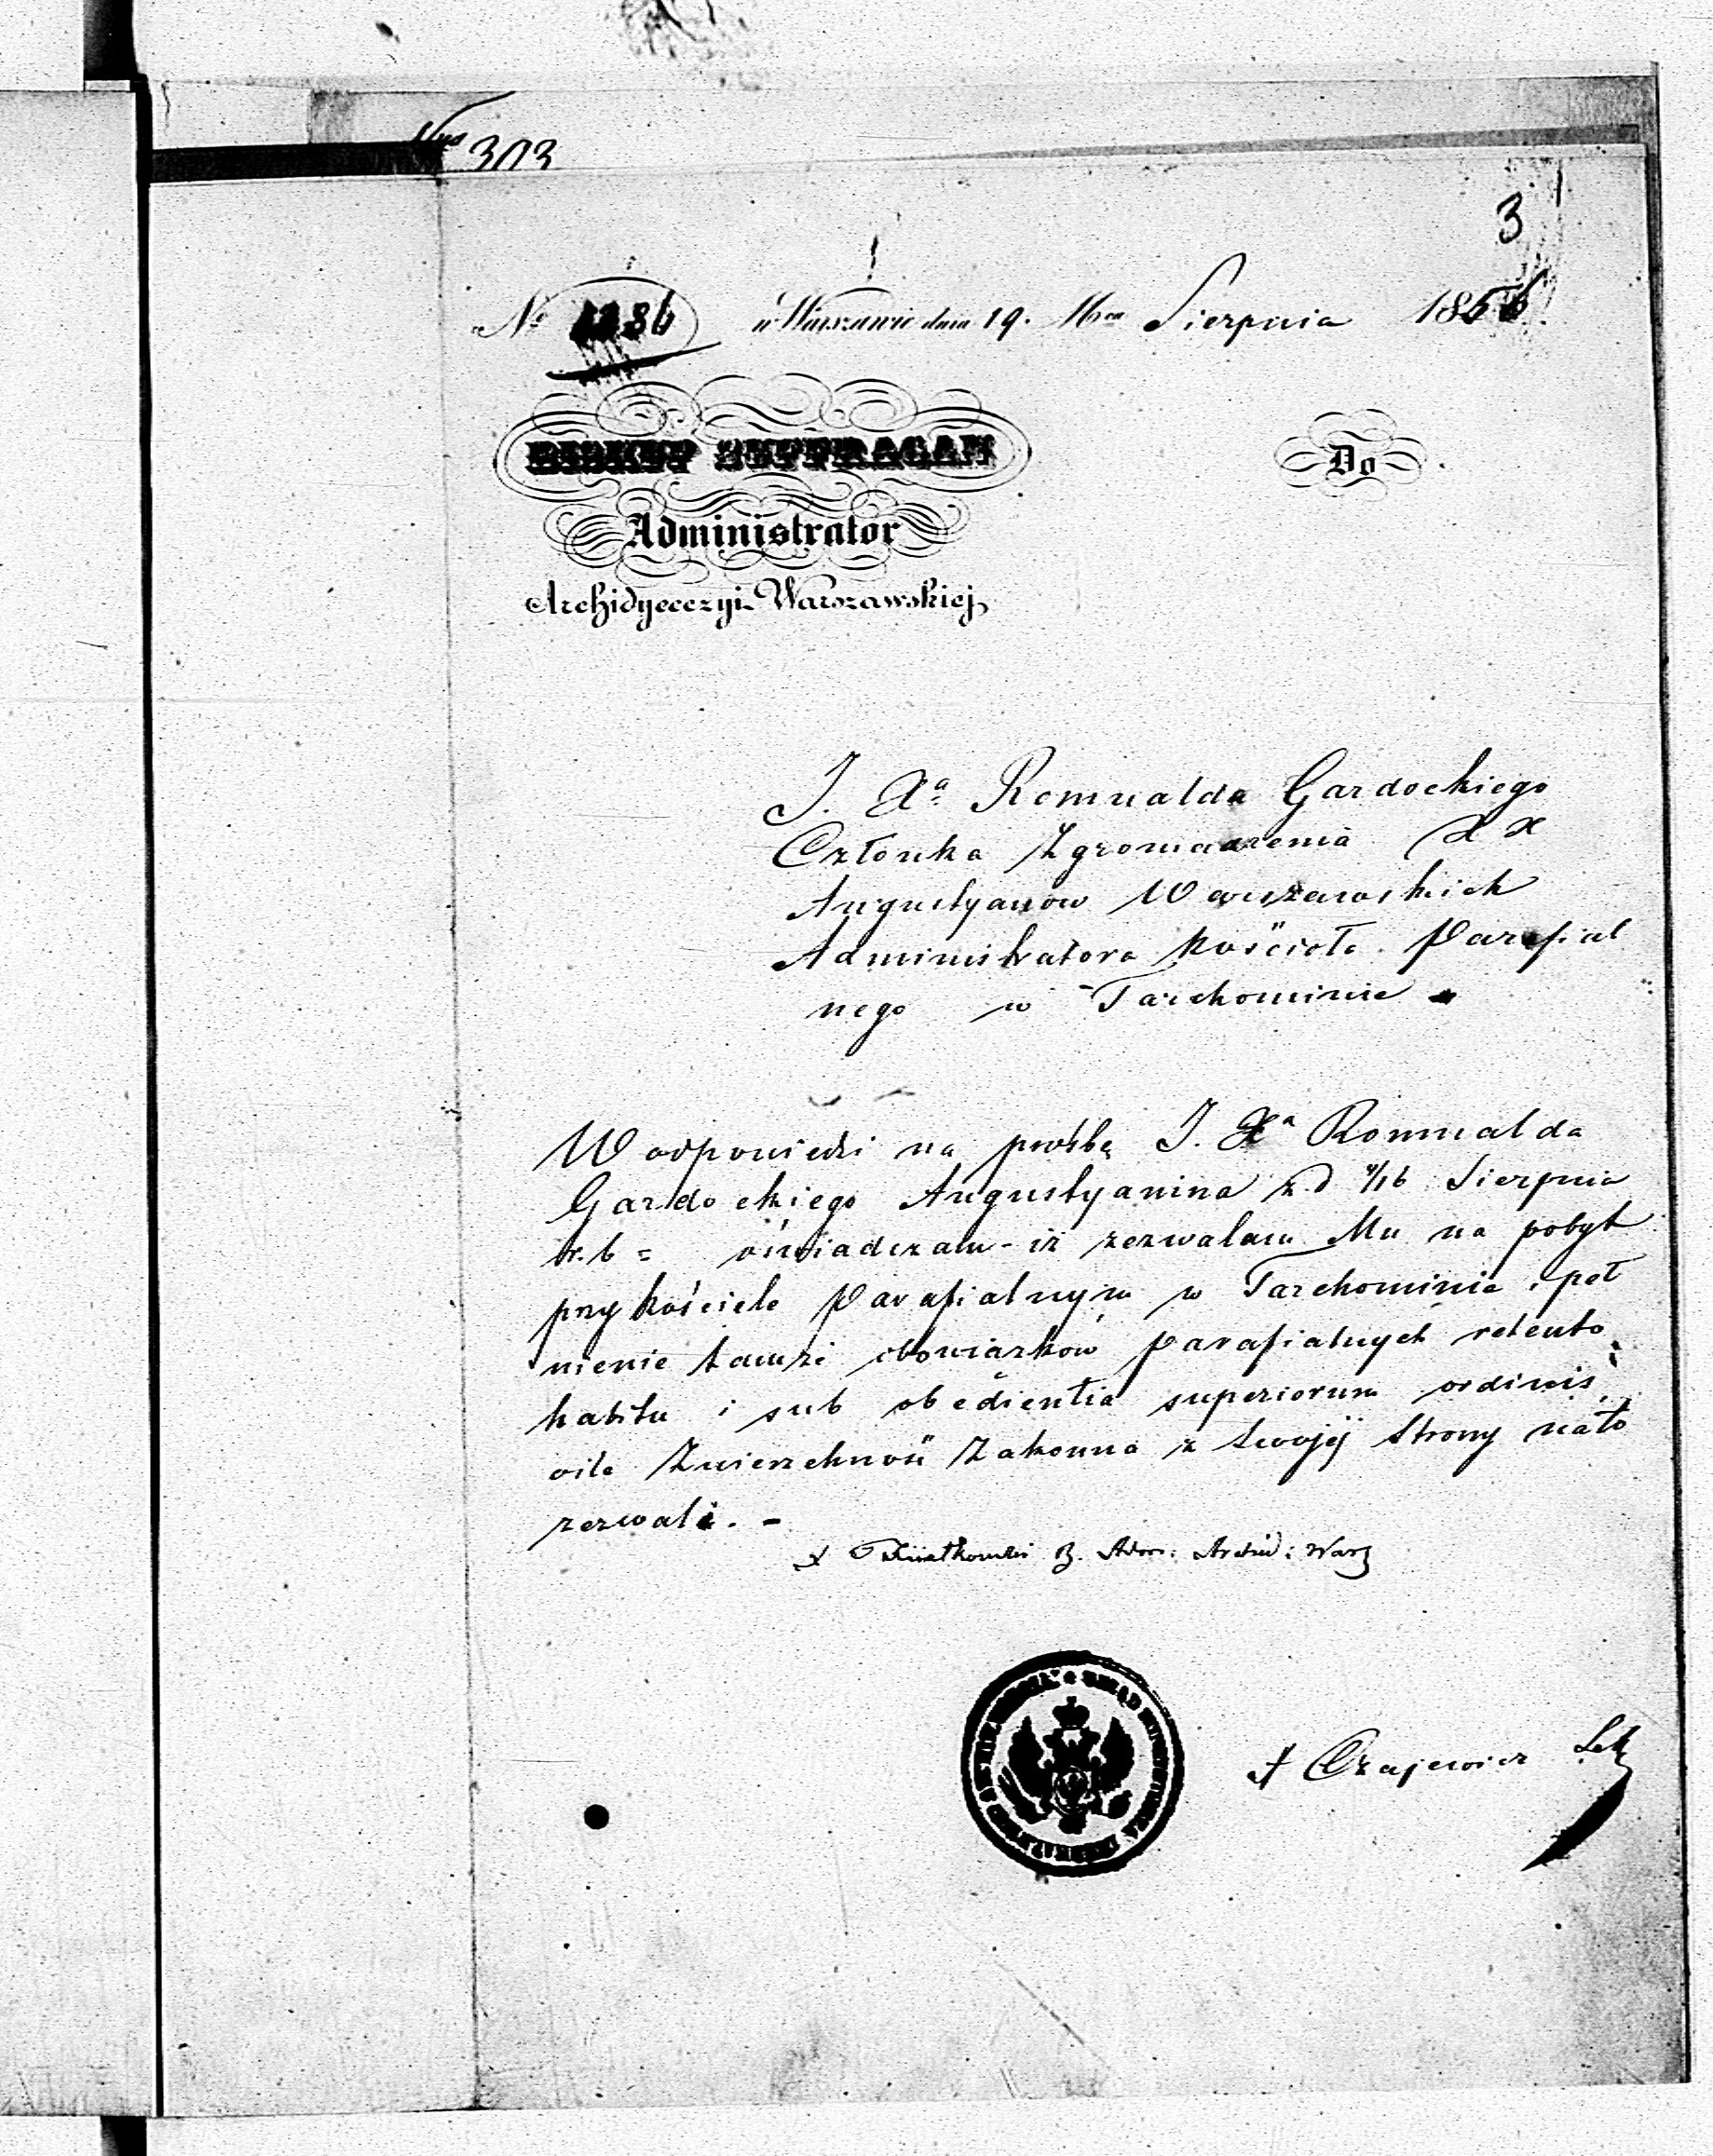 303
3
№ 1236 w Warszawie dnia 19. Mca Sierpnia 1856.
BISKUP SUFFRAGAN
Do
Administrator
Archidyecezyi Warszawskiej
J. Xa Romualda Gardockiego
Członka Zgromadzenia XX
Augustyanów Warszawskich
Administratora Kościoła Parafial
nego w Tarchominie
W odpowiedzi na prośbę J. Xa Romualda
Gardockiego Augustyanina z d 4/16 Sierpnia
r. b = oświadczam - iż zezwalam Mu na pobyt
przy Kościele Parafialnym w Tarchominie i peł
nienie tamże obowiązków Parafialnych retento
habitu i sub obedientia superiorum ordinis,
oile Zwierzchność Zakonna z swojéj strony nato
zezwoli. -
Adm: Archid: Warz
X Czajewicz Sek